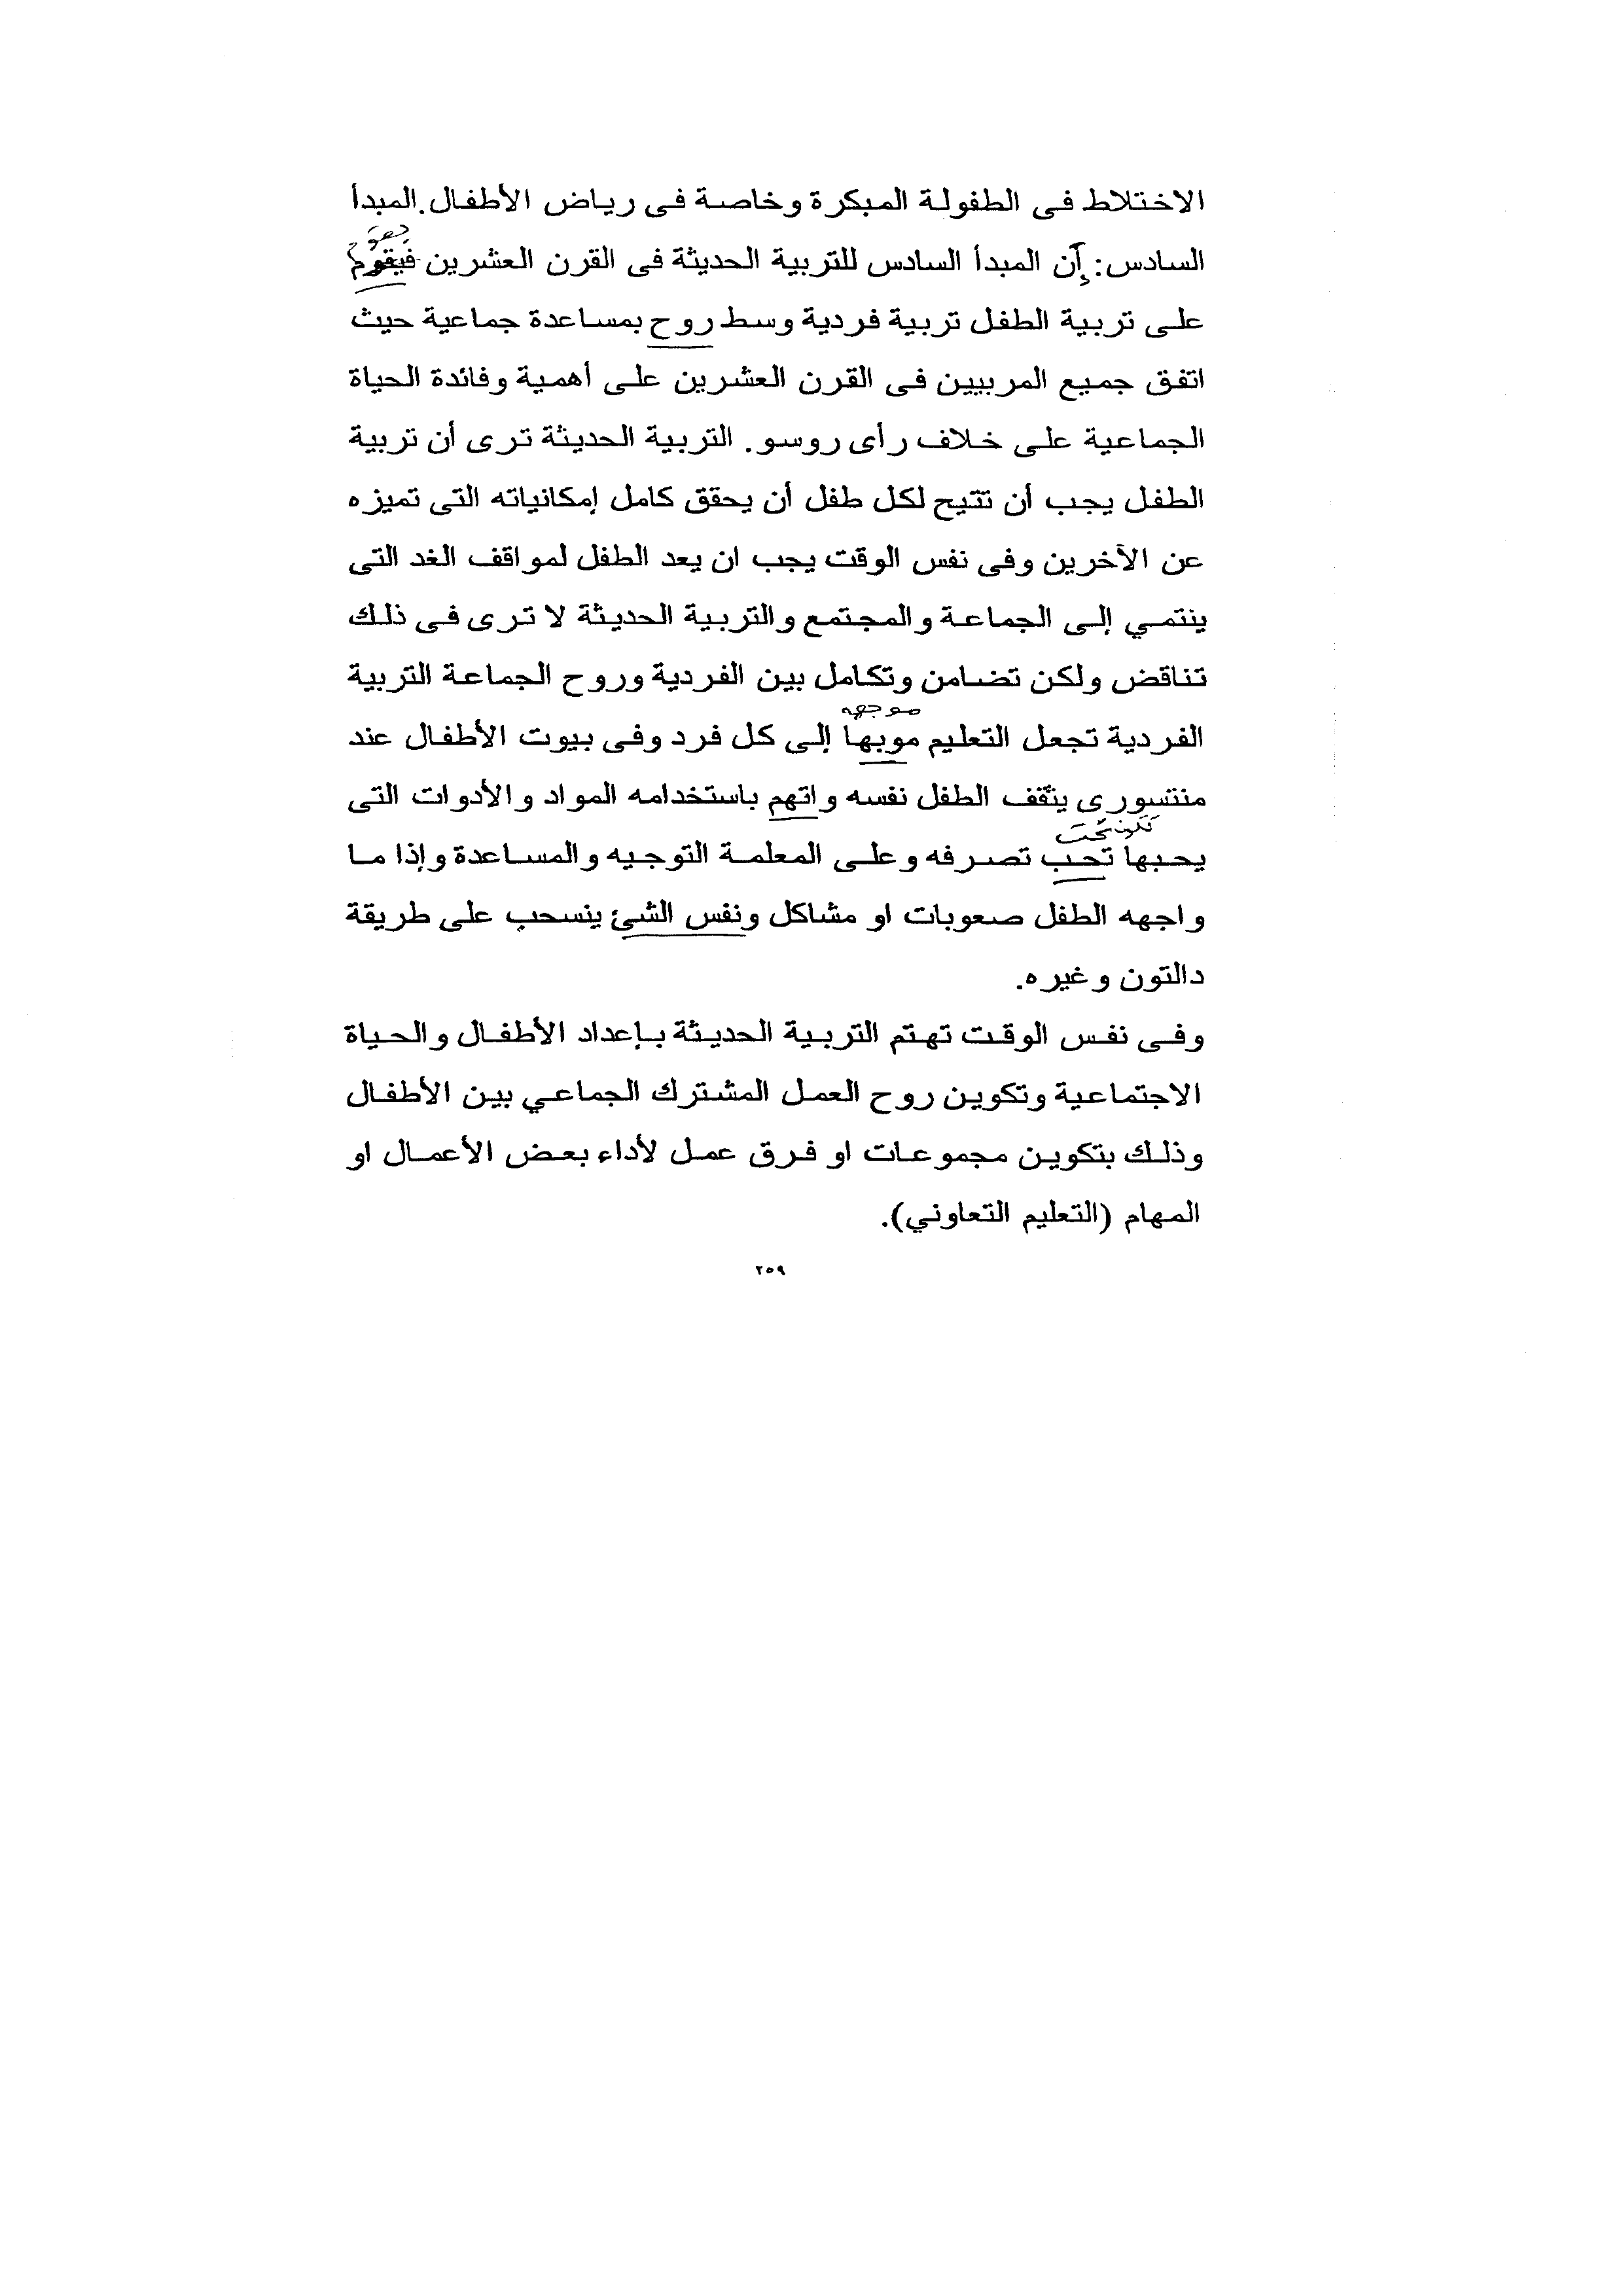 الاختلاط فى الطفولة المبكرة وخاصة فى رياض الأطفال. المبدأ
السادس: إن المبدأ السادس للتربية الحديثة فى القرن العشرين فيقوم
على تربية الطفل تربية فردية وسط روح بمساعدة جماعية حيث
اتفق جميع المربيين فى القرن العشرين على أهمية وفائدة الحياة
الجماعية على خلاف رأى روسو. التربية الحديثة ترى أن تربية
الطفل يجب أن تتيح لكل طفل أن يحقق كامل إمكانياته التى تميزه
عن الآخرين وفى نفس الوقت يجب ان يعد الطفل لمواقف الغد التى
ينتمي إلى الجماعة والمجتمع والتربية الحديثة لا ترى فى ذلك
تناقض ولكن تضامن وتكامل بين الفردية وروح الجماعة التربية
موجهه
الفردية تجعل التعليم موبها إلى كل فرد وفى بيوت الأطفال عند
منتسورى يثقف الطفل نفسه واتهم باستخدامه المواد والأدوات التى
تكون تحت
يحبها تحب تصرفه وعلى المعلمة التوجيه والمساعدة وإذا ما
واجهه الطفل صعوبات او مشاكل ونفس الشئ ينسحب على طريقة
دالتون وغيره.
وفى نفس الوقت تهتم التربية الحديثة بإعداد الأطفال والحياة
الاجتماعية وتكوين روح العمل المشترك الجماعي بين الأطفال
وذلك بتكوين مجموعات او فرق عمل لأداء بعض الأعمال او
المهام (التعليم التعاوني).
٢٥٩